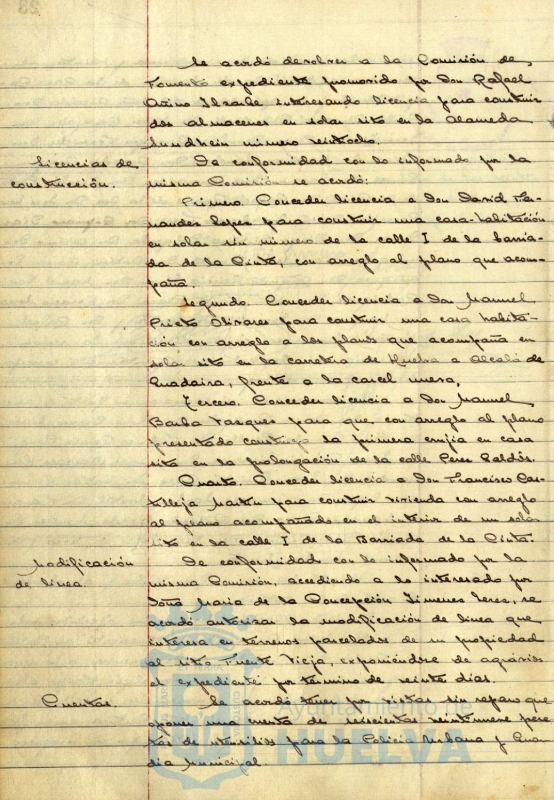 Se acordó devolver a la Comisión de
Fomento expediente promovido por Don Rafael
interesando licencia para construir
dos almacenes en solar sito en la Alameda
Sundheim número veintiocho.
Licencias de
construcción.
De conformidad con lo informado por la
misma Comisión se acordó:
Primero. Conceder licencia a Don David Fer-
nandez Lopez para construir una casa-habitación
en solar sin número de la calle I de la barria-
da de la Cinta, con arreglo al plano que acom-
paña.
Segundo. Conceder licencia a Don Manuel
Prieto Olivares para construir una casa habita-
ción con arreglo a los planos que acompaña en
solar sito en la carretera de Huelva a Alcalá de
Guadaira, frente a la carcel nueva,
Tercero. Conceder licencia a Don Manuel
Barba Vasques para que con arreglo al plano
presentado construya la primera crujia en casa
sita en la prolongación de la calle Perez Galdós.
Cuarto. Conceder licencia a Don Francisco Cas-
tilleja Martin para construir vivienda con arreglo
al plano acompañado en el interior de un solar
sito en la calle I de la Barriada de la Cinta.
Modificación
de línea.
De conformidad con lo informado por la
misma Comisión, accediendo a lo interesado por
Doña Maria de la Concepción Jimenez, se
acordó autorizar la modificación de linea que
interesa en terrenos parcelados de su propiedad
al sitio Fuente Vieja, exponiéndose de agravios
el expediente por término de veinte dias.
Cuentas.
Se acordó tener por vistas sin reparo que
oponer una cuenta de seiscientas veintinueve pese-
tas de utensilios para la Policia Urbana y Guar-
dia Municipal.
Ayuntamiento de
HUELVA